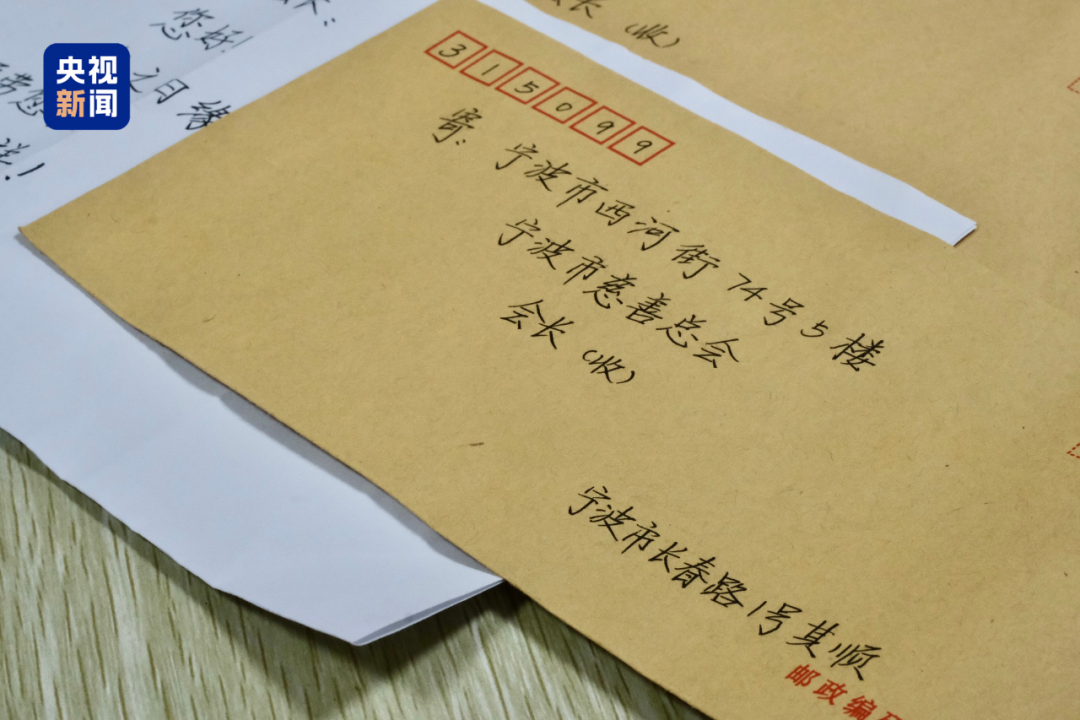 央视
新闻
您好!
之日
会长(收)
315099
寄:
宁波市西河街74号5楼
宁波市慈善总会
会长(收)
宁波市长春路1号其顺
邮政编